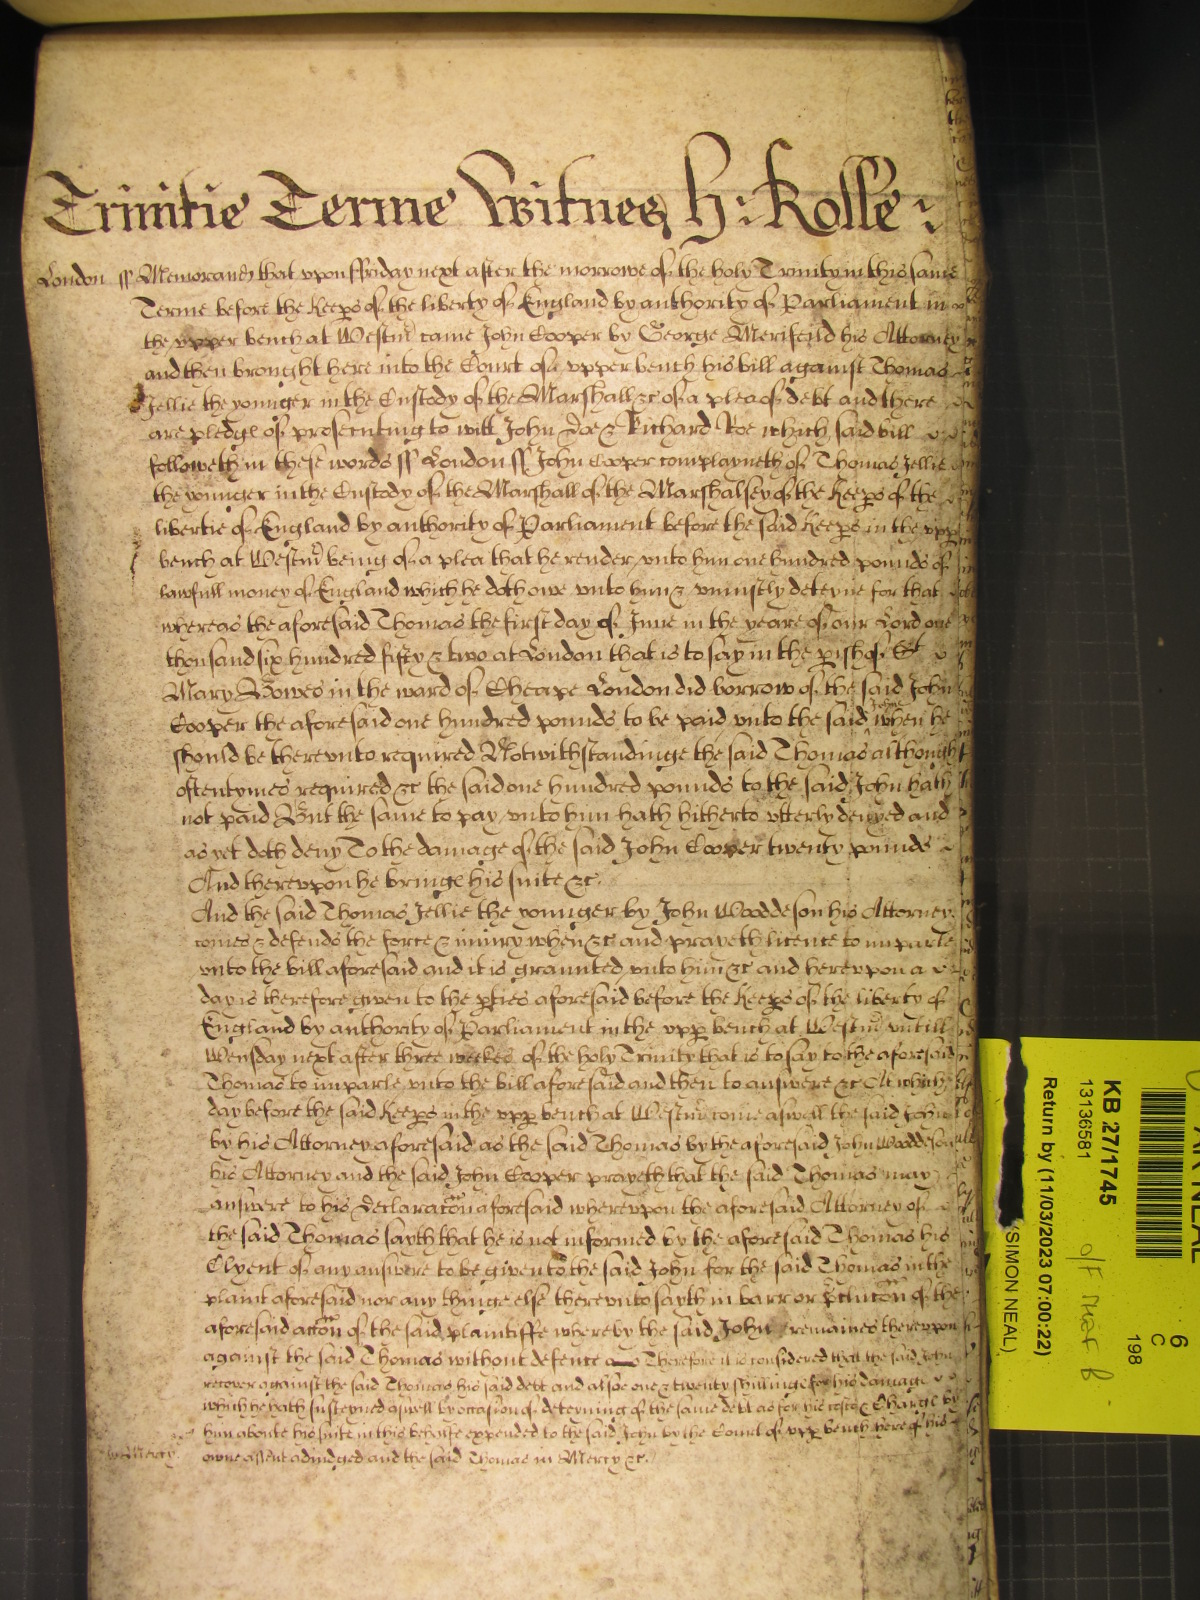 Trinitie Terme Witnes H: Rolle:
London ss Memorand that vpon ffriday next after the morrowe of the holy Trinity in this same
Terme before the Keeps of the liberty of England by authority of Parliament in
the vpper bench at Westm came John Cooper by George Merifeild his Attorney
and then brought here into the Court of vpper bench his bill against Thomas
Jellie the younger in the Custody of the Marshall &c of a plea of debt and there
are pledge of prosecuting to witt John Doe & Richard Roe which said bill
followeth in these words ss London ss John Cooper complayneth of Thomas Jellie
the younger in the Custody of the Marshall of the Marshalsey of the Keeps of the
libertie of England by authority of Parliament before the said Keeps in the vpp
bench at Westm being of a plea that he render vnto him one hundred pounds of
lawfull money of England which he doth owe vnto him & vniustly deteyne for that
whereas the aforesaid Thomas the first day of June in the yeare of our Lord one
thousand six hundred fifty & two at London that is to say in the pish of St
Mary Bowes in the ward of Cheape London did borrow of the said John
Cooper the aforesaid one hundred pounds to be paid vnto the said John when he
should be therevnto required Notwithstandinge the said Thomas although
oftentymes required &c the said one hundred pounds to the said John hath
not paid But the same to pay vnto him hath hitherto vtterly denyed and
as yet doth deny To the damage of the said John Cooper twenty pounds
And therevpon he bringe his suite &c.
And the said Thomas Jellie the younger by John Woaddeson his Attorney
comes & defends the force & iniury when &c and prayeth licence to imparle
vnto the bill aforesaid and it is graunted vnto him &c and herevpon a
day is therefore given to the pties aforesaid before the Keeps of the liberty of
England by authority of Parliament in the vpp bench at Westm vntill
Wensday next after three weekes of the holy Trinity that is to say to the aforesaid
Thomas to imparle vnto the bill aforesaid and then to answere &c At which
day before the said Keeps in the vpp bench at Westm come aswell the said John
by his Attorney aforesaid as the said Thomas by the aforesaid John Woaddeson
his Attorney and the said John Cooper prayeth that the said Thomas may
answere to his Declaracon aforesaid wherevpon the aforesaid Attorney of
the said Thomas sayth that he is not informed by the aforesaid Thomas his
Clyent of any answere to be given to the said John for the said Thomas in the
plaint aforesaid nor any thinge else therevnto sayth in barr or pclucon of the
aforesaid accon of the said plaintiffe whereby the said John remaines therevpon
against the said Thomas without defence Therefore it is considered that the said John
recover against the said Thomas his said debt and alsoe one & twenty shillinge for his damage
which he hath susteyned aswell by occasion of deteyning of the same debt as for his costs & Charge by
him aboute his suite in this behalfe expended to the said John by the Court of vpp bench here of his
owne assent adiudged and the said Thomas in Mercy &c.
in Mercy
KB 27/1745
13136581
Return by (11/03/2023 07:00:22)
(SIMON NEAL)
6
C
198